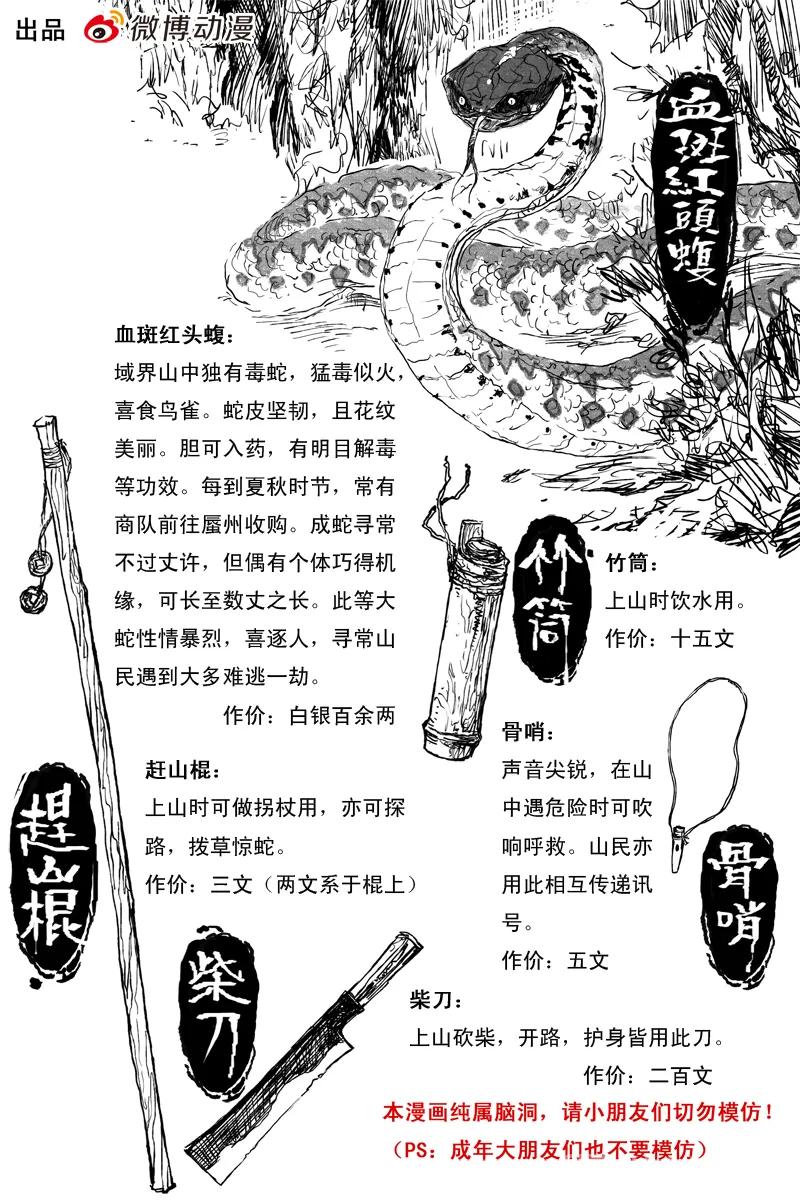 出品 微博动漫
血斑紅頭蝮
血斑红头蝮：
域界山中独有毒蛇，猛毒似火，
喜食鸟雀。蛇皮坚韧，且花纹
美丽。胆可入药，有明目解毒
等功效。每到夏秋时节，常有
商队前往蜃州收购。成蛇寻常
不过丈许，但偶有个体巧得机
缘，可长至数丈之长。此等大
蛇性情暴烈，喜逐人，寻常山
民遇到大多难逃一劫。
作价：白银百余两
竹筒
竹筒：
上山时饮水用。
作价：十五文
赶山棍：
上山时可做拐杖用，亦可探
路，拨草惊蛇。
作价：三文（两文系于棍上）
趕山棍
骨哨：
声音尖锐，在山
中遇危险时可吹
响呼救。山民亦
用此相互传递讯
号。
作价：五文
骨哨
柴刀
柴刀：
上山砍柴，开路，护身皆用此刀。
作价：二百文
本漫画纯属脑洞，请小朋友们切勿模仿！
（PS：成年大朋友们也不要模仿）